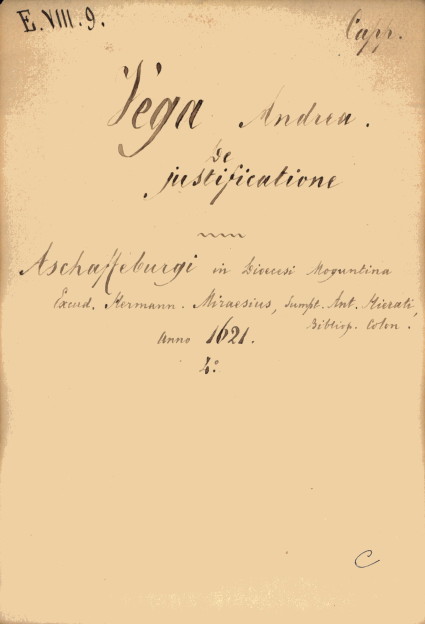 E.VIII.9.
Capp.
Vega Andrea.
De
justificatione
Aschaffeburgi in Diocesi Moguntina
Excud. Hermann. Miraesius, Sumpt. Ant. Hierati,
Bibliop. Colon.
Anno 1621.
4°
C